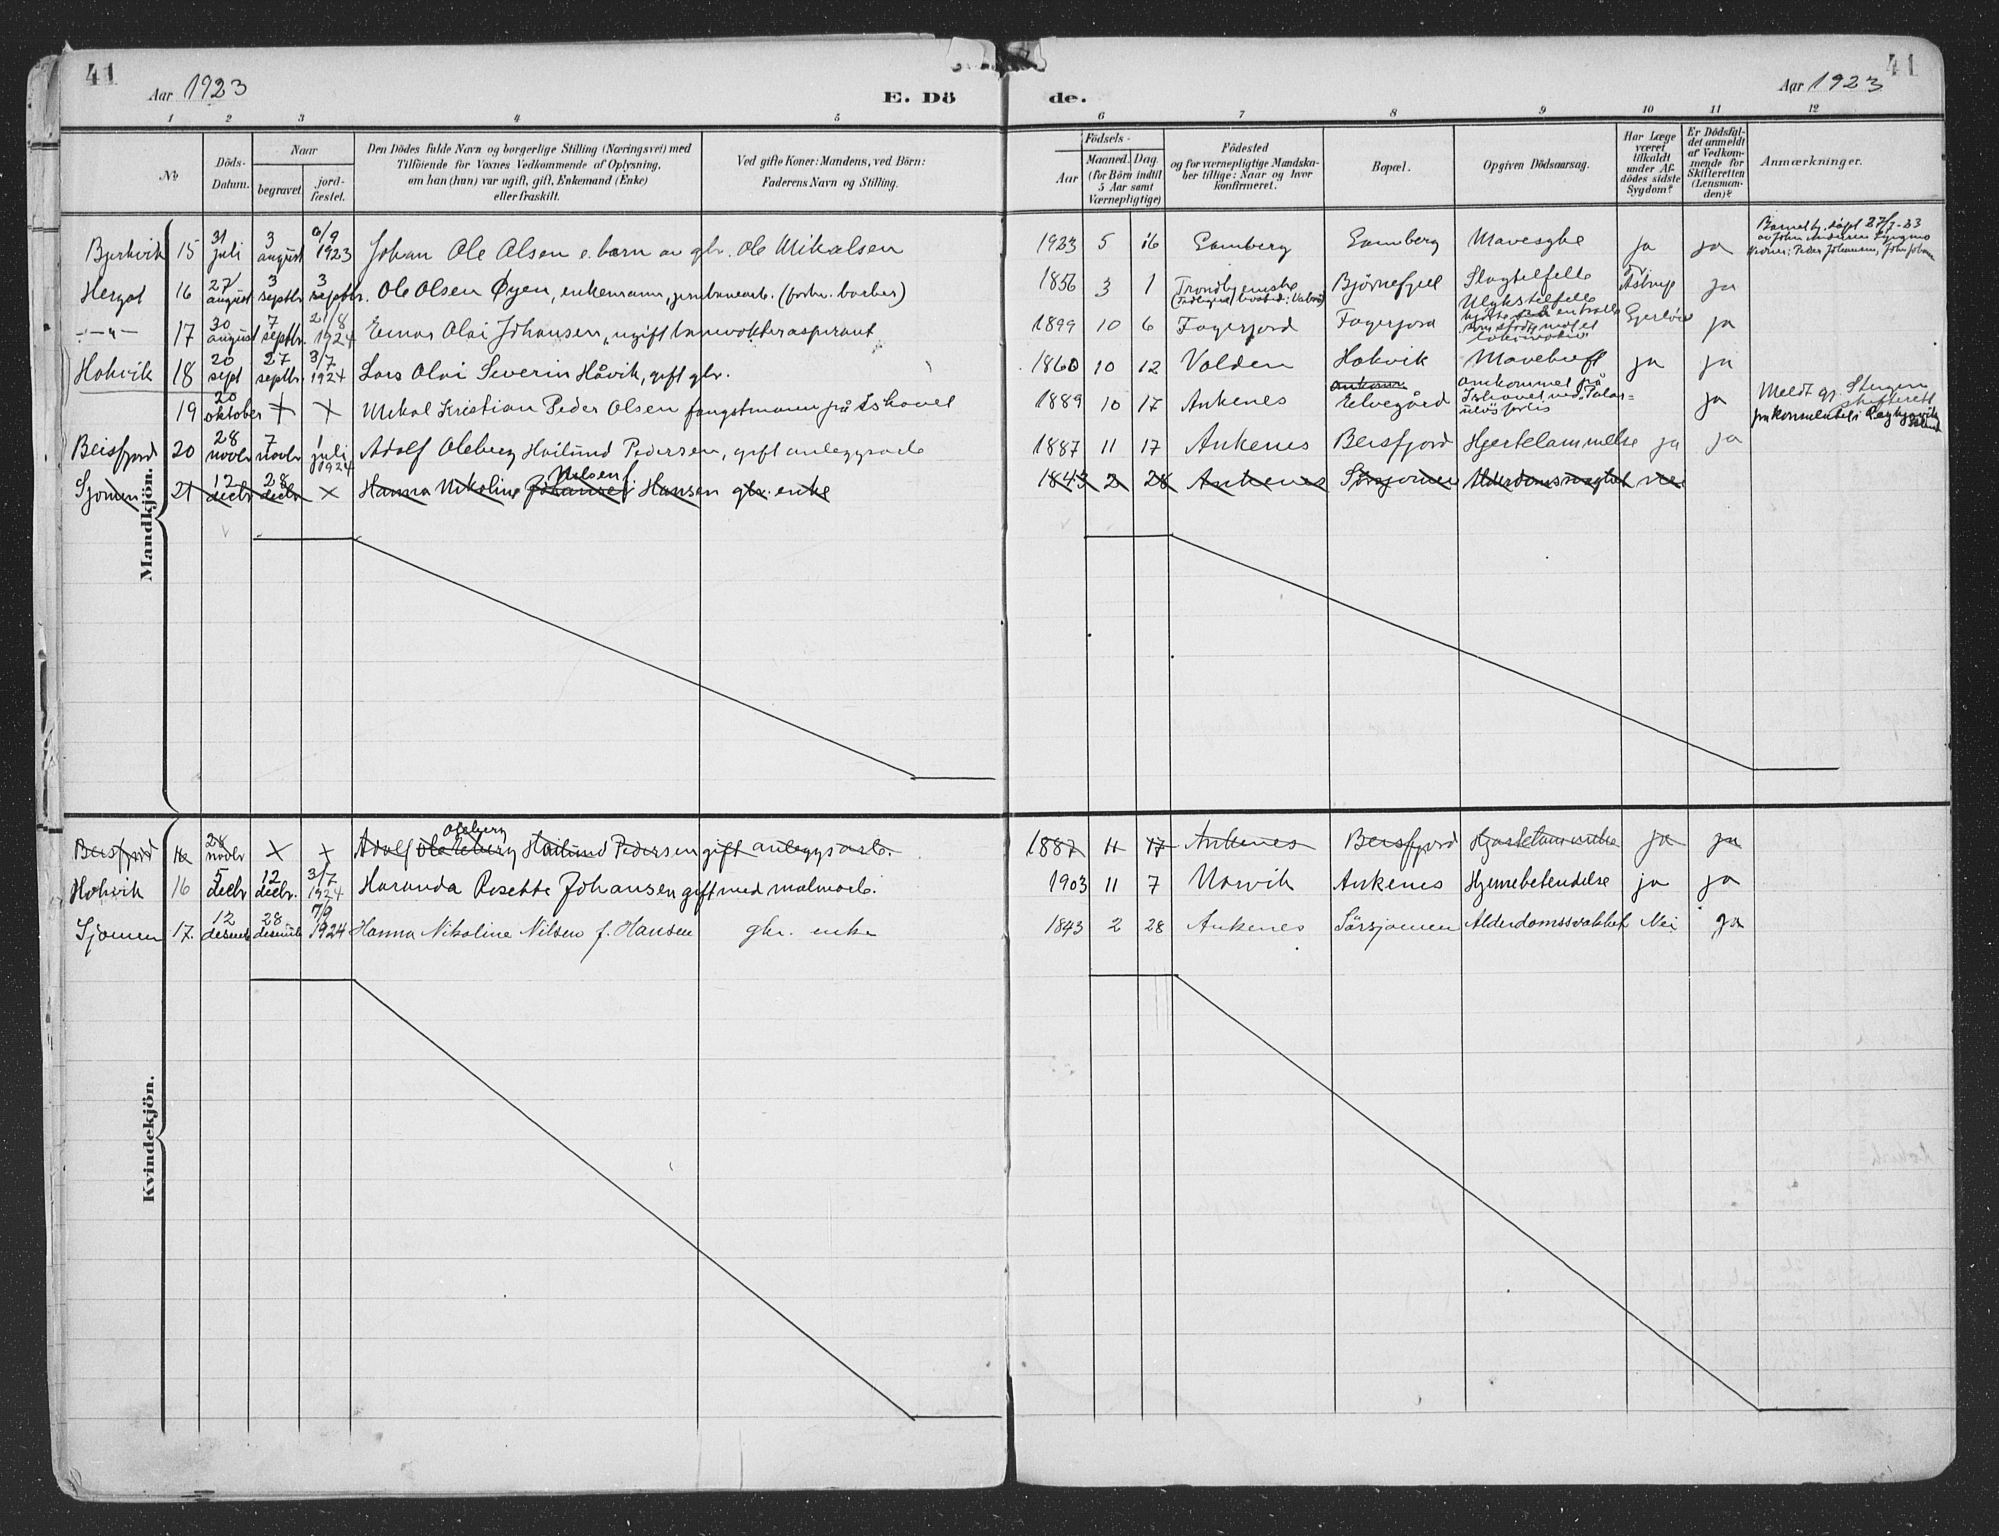 41
Aar 1923
E. Dö
de.
Aar 1923
41
1 2 3 4 5 6 7 8 9 10 11 12
No
Döds-Datum.
Naar
begravet
jord-fæstet.
Den Dödes fulde Navn og borgerlige Stilling (Næringsvei) med
Tilföiende for Voxnes Vedkommende af Oplysning,
om han (hun) var ugift, gift, Enkemand (Enke)
eller fraskilt.
Ved gifte Koner: Mandens, ved Börn:
Faderens Navn og Stilling.
Födsels-
Aar
Maaned. Dag.
(for Börn indtil
5 Aar samt
Værnepligtige)
Födested
og for værnepligtige Mandska-
ber tillige: Naar og hvor
konfirmeret.
Bopæl.
Opgiven Dödsaarsag.
Har Læge
været
tilkaldt
under Af-
dödes sidste
Sygdom?
Er Dödsfal-
det anmeldt
af Vedkom-
mende for
Skifteretten
(Lensman-
den)?
Anmærkninger.
Mandkjön.
Bjerkvik 15 31 juli 3 august 1923 Johan Ole Olsen e. barn av gbr. Ole Mikalsen 1923 5 16 Mavesyke ja ja
Hergot 16 27 august 3 septbr. 3 septbr. Ole Olsen Øyen, enkemann, (forhv. barber) 1856 3 1 Bjørnefjell Slagtilfelle ja
-"- 17 30 august 7 septbr. 21/8 1924 Einar Olai Johansen, ugift banevokteraspirant 1899 10 6 Fagerjord Fagerjord Ulykkestilfelle ja
Hokvik 18 20 sept 27 septbr. 3/7 1924 Lars Olai Severin Håvik, gift gbr. 1860 10 12 Volden Hokvik Mavekreft ja ja
19 20 oktober × × Mikal Kristian Peder Olsen fangstmann på Ishavet 1889 10 17 Ankenes Elvegård omkommet på Ishavet ved ja Meldt fra konsulatet i Reykjavik
Beisfjord 20 28 novbr 7 novbr 1 juli 1924 Adolf Oleberg Hoilund Pedersen, gift anleggsarb. 1887 11 17 Ankenes Beisfjord Hjertelammelse ja ja
Sjomen 21 12 decbr 28 decbr × Hanna Nikoline Johansen Nilsen f. Hansen gbr. enke 1843 2 28 Ankenes Sørsjomen Alderdomssvaghet nei
Kvindekjön.
Beisfjord 28 novbr × × Adolf Oleberg Hoilund Pedersen gift anleggsarb. 1887 11 17 Ankenes Beisfjord Hjertelammelse ja ja
Hokvik 16 5 decbr 12 decbr. 3/7 1924 Haranda Rosette Johansen gift med malmarb. 1903 11 7 Narvik Ankenes Hjernebetendelse ja ja
Sjomen 17. 12 desemb 28 desemb 7/9 1924 Hanna Nikoline Nilsen f. Hansen gbr. enke 1843 2 28 Ankenes Sørsjomen Alderdomssvakhet Nei ja